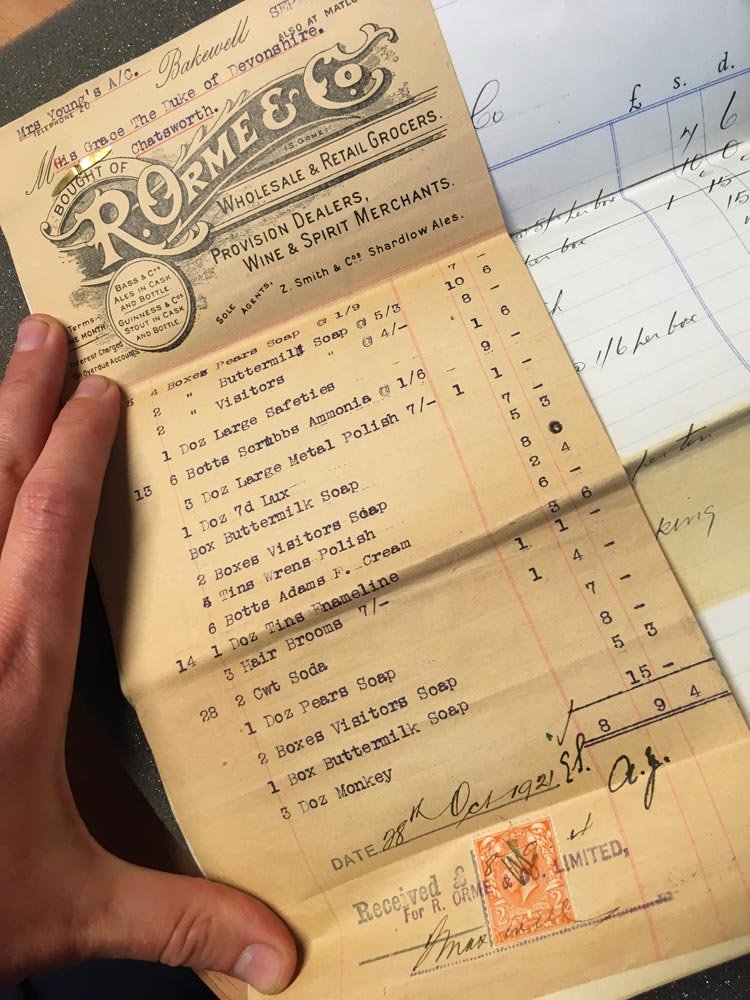 SEP
Bakewell
ALSO AT MATLO
Mrs Young's A/C.
TELEPHONE 20
M His Grace The Duke of Devonshire.
Chatsworth.
BOUGHT OF
R. ORME & Co.
(S. ORME)
WHOLESALE & RETAIL GROCERS.
PROVISION DEALERS,
WINE & SPIRIT MERCHANTS.
SOLE AGENTS, Z. Smith & Cos Shardlow Ales.
BASS & Cos
ALES IN CASK
AND BOTTLE.
GUINNESS & Cos
STOUT IN CASK
AND BOTTLE.
Terms:-
ONE MONTH
Interest Charged
on Overdue Accounts
5 4 Boxes Pears Soap @ 1/9 7 -
2 " Buttermilk Soap @ 5/3 10 6
2 " Visitors " @ 4/- 8 -
1 Doz Large Safeties 1 6
6 Botts Scrubbs Ammonia @ 1/6 9 -
13 3 Doz Large Metal Polish 7/- 1 1 -
1 Doz 7d Lux 7 -
Box Buttermilk Soap 5 3
2 Boxes Visitors Soap 8
Tins Wrens Polish 2 4
6 Botts Adams F. Cream 6 -
1 Doz Tins Enameline 3 6
14 3 Hair Brooms 7/- 1 1 -
2 Cwt Soda 1 4 -
28 1 Doz Pears Soap 7 -
2 Boxes Visitors Soap 8 -
1 Box Buttermilk Soap 5 3
3 Doz Monkey 15 -
8 9 4
DATE 28th Oct 1921 a.y.
Received £ 8 9 4
For R. ORME & CO. LIMITED,
2 2
Co
£ s. d.
7 6
10 0
per box
1 15
per box
15
@ 1/6 per box
per ton
king